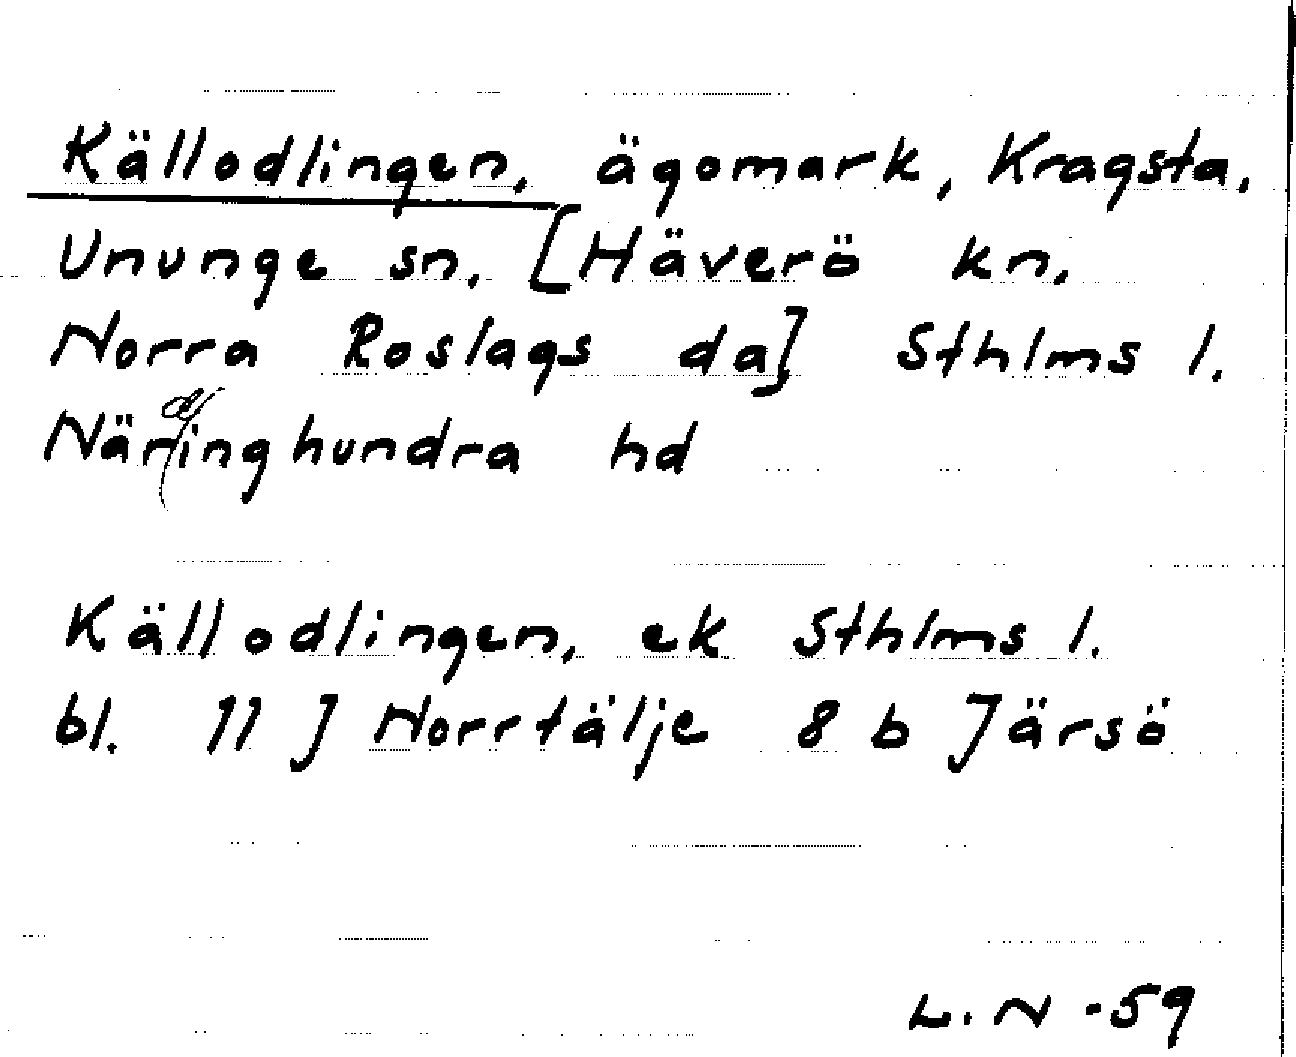 Källodlingen, ägomark, Kragsta,
Ununge sn. [Häverö kn.
Norra Roslags da] Sthlms l.
Närdinghundra hd
Källodlingen, ek Sthlms l.
bl. 11 J Norrtälje 8 b Järsö
L. N -59